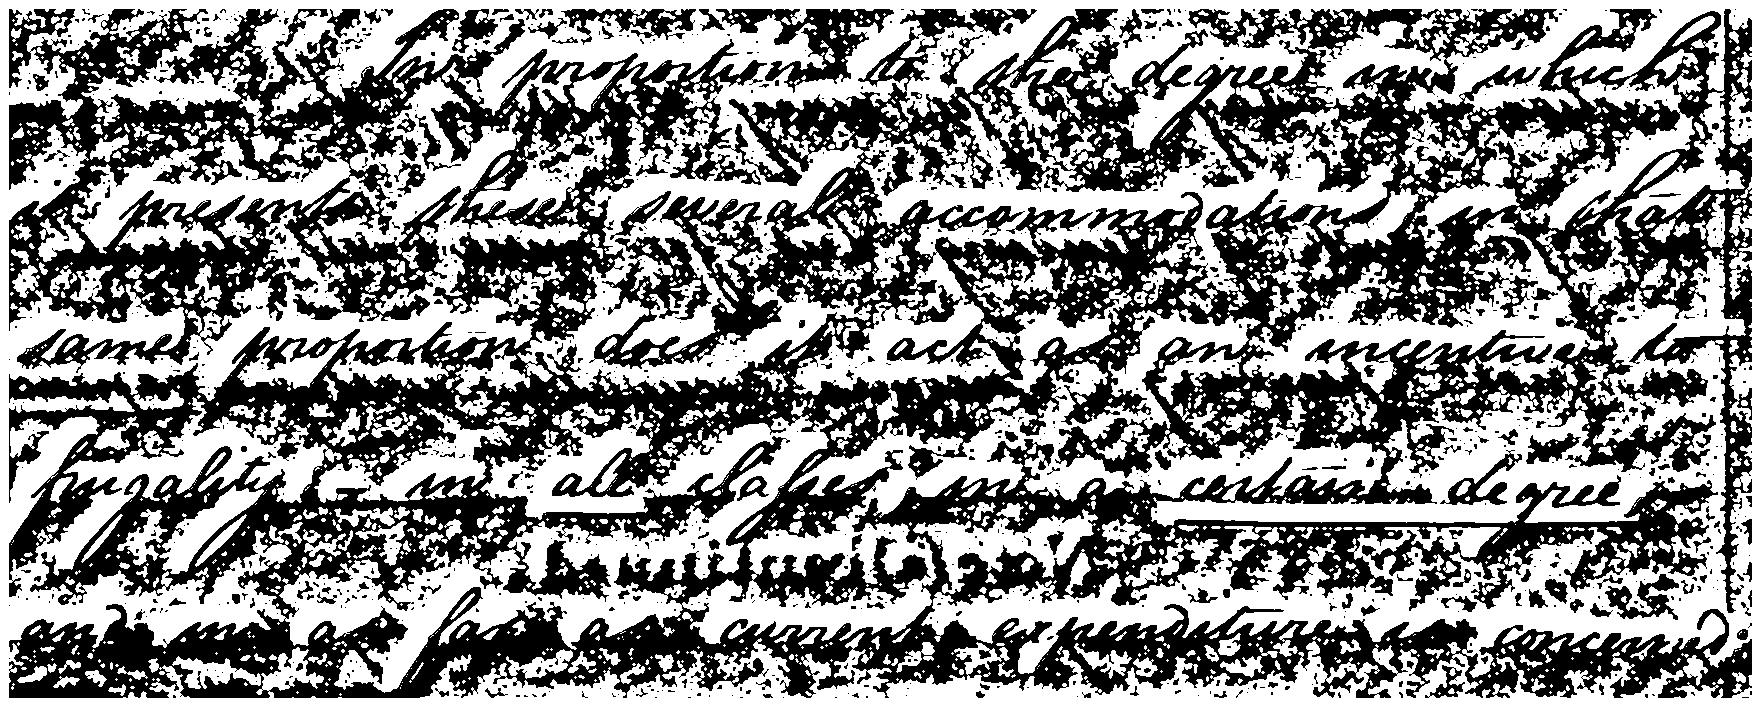 In proportion to the degree in which
it presents these several accommodations, in that
same proportion does it act as an incentive to
frugality - in all classes, in a certain degree
and in as far as current expenditure is concerned.